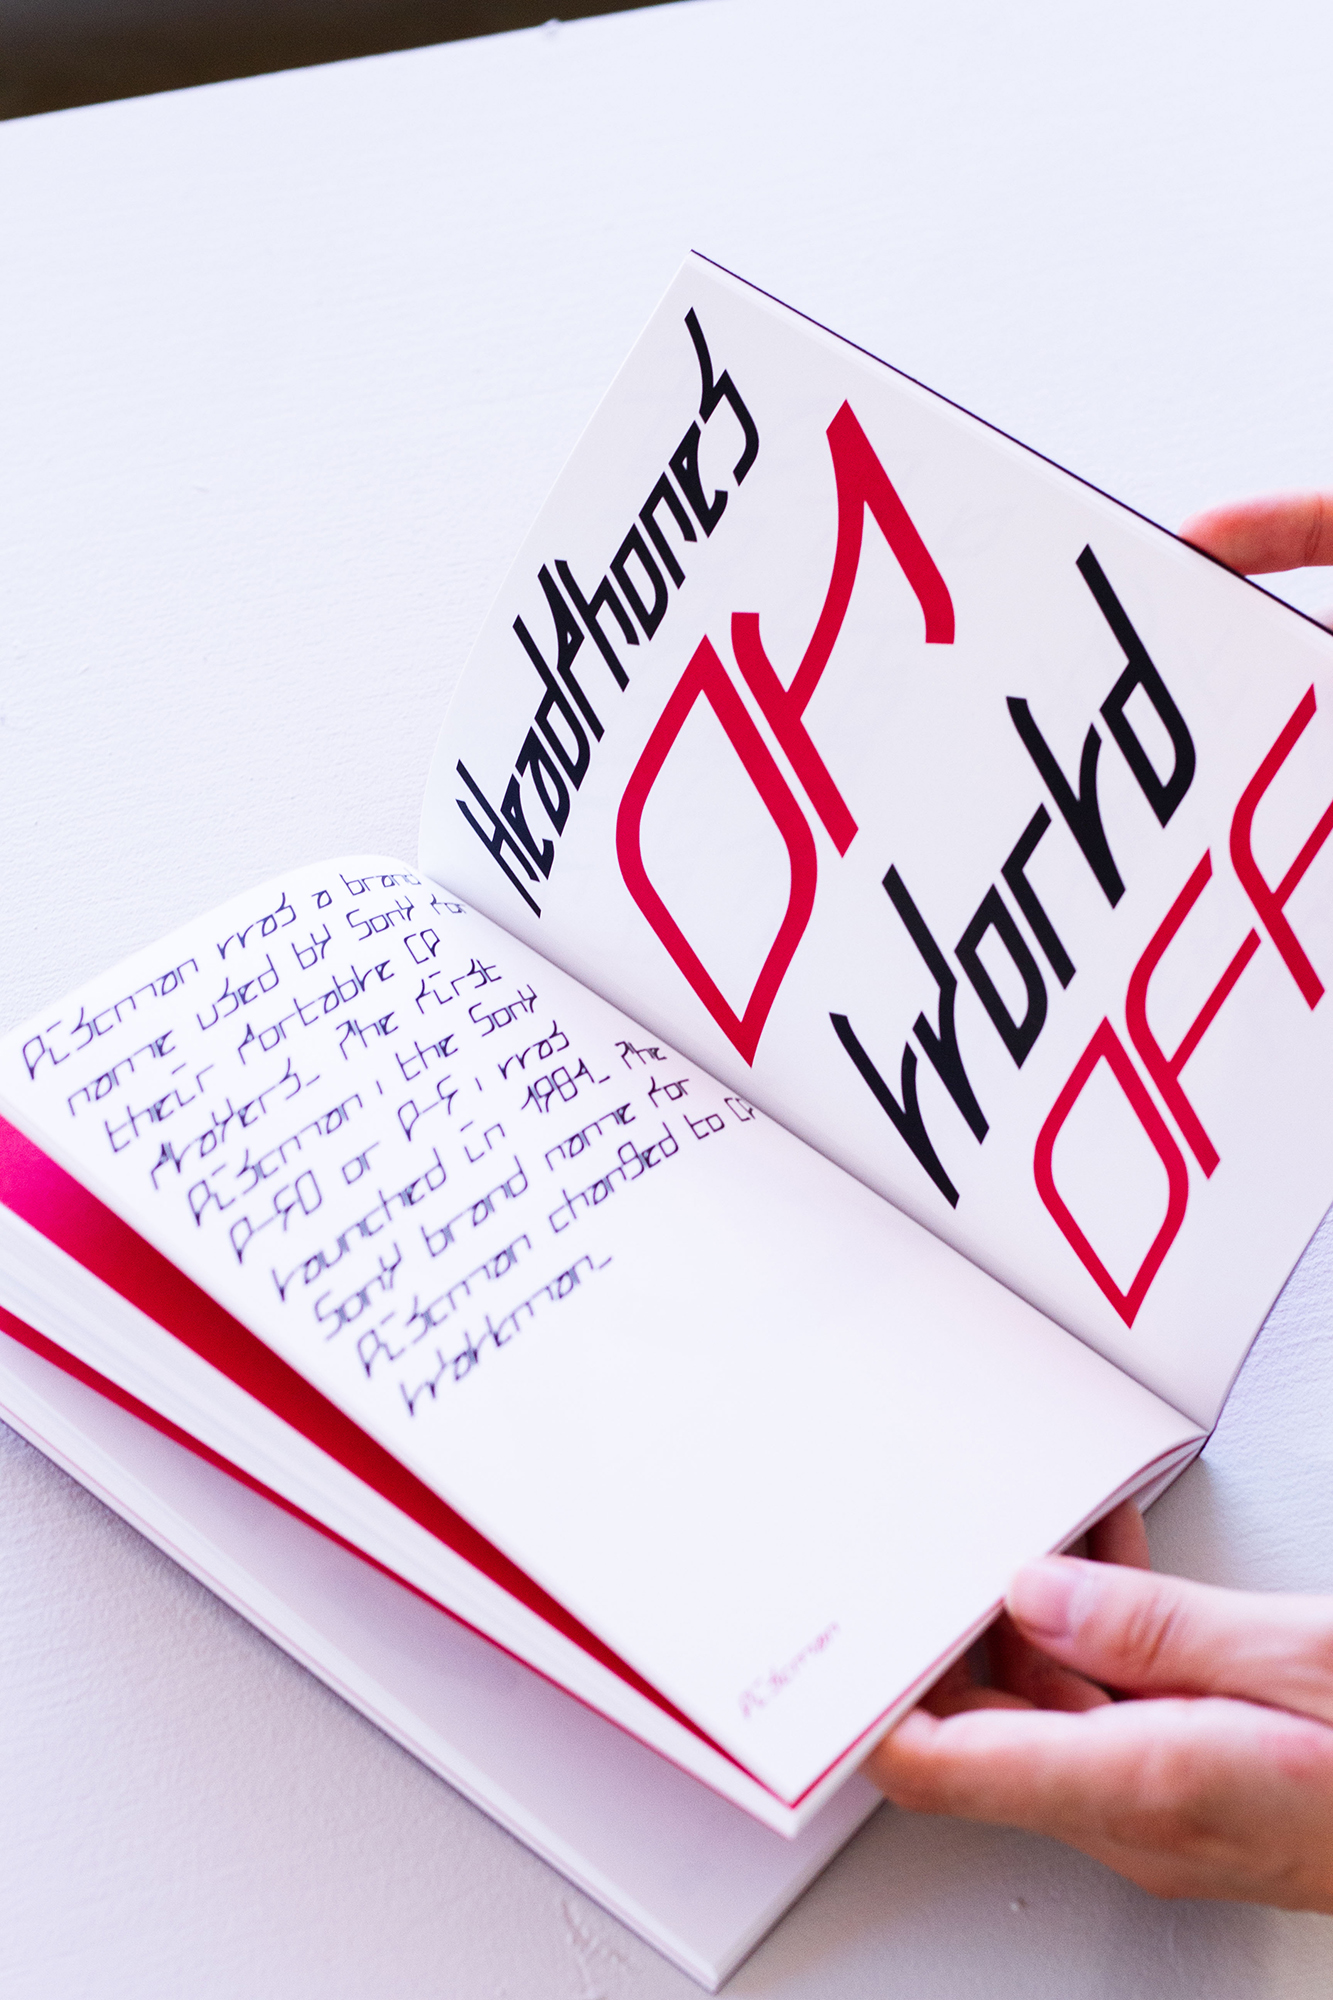 Discman was a brand
name used by Sony for
their portable CD
players. The first
Discman, the Sony
D-50 or D-5, was
launched in 1984. The
Sony brand name for
Discman changed to CD
Walkman.
Discman
Headphones
ON
World
OFF